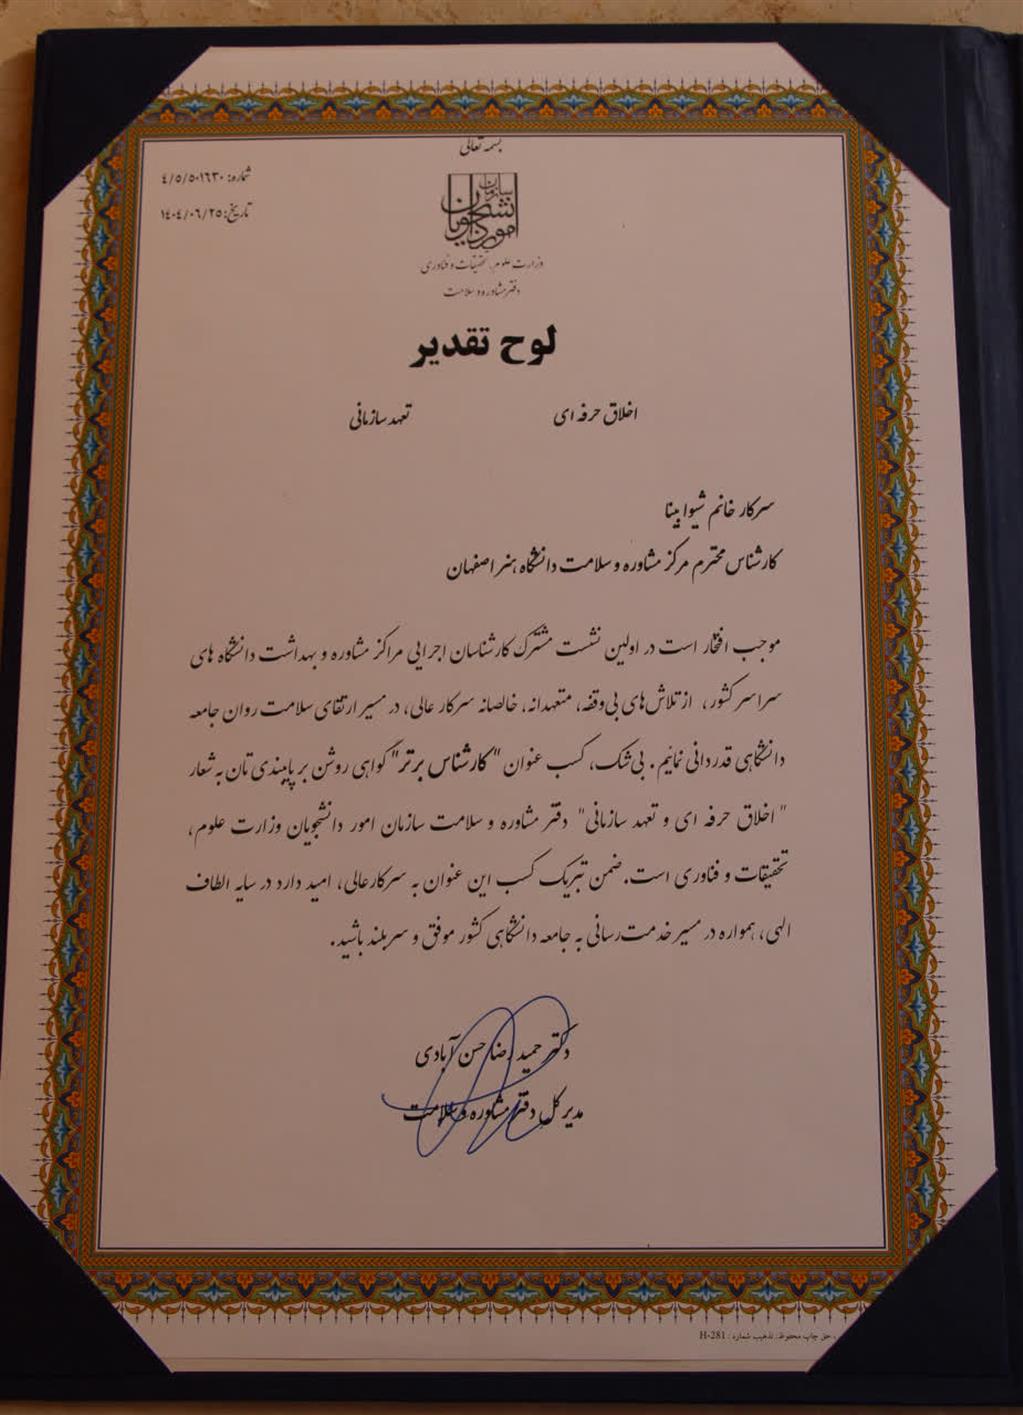 بسمه تعالی
شماره: ۴/۵/۵۰۱۶۳۰
تاریخ: ۱۴۰۴/۰۶/۲۵
سازمان امور دانشجویان
وزارت علوم، تحقیقات و فناوری
دفتر مشاوره و سلامت
لوح تقدیر
اخلاق حرفه ای تعهد سازمانی
سرکار خانم شیوا بینا
کارشناس محترم مرکز مشاوره و سلامت دانشگاه هنر اصفهان
موجب افتخار است در اولین نشست مشترک کارشناسان اجرایی مراکز مشاوره و بهداشت دانشگاه های
سراسر کشور، از تلاش‌های بی‌وقفه، متعهدانه، خالصانه سرکار عالی، در مسیر ارتقای سلامت روان جامعه
دانشگاهی قدردانی نمائیم. بی‌شک، کسب عنوان "کارشناس برتر" گواهی روشن بر پایبندی تان به شعار
"اخلاق حرفه ای و تعهد سازمانی" دفتر مشاوره و سلامت سازمان امور دانشجویان وزارت علوم،
تحقیقات و فناوری است. ضمن تبریک کسب این عنوان به سرکارعالی، امید دارد در سایه الطاف
الهی، همواره در مسیر خدمت‌رسانی به جامعه دانشگاهی کشور موفق و سربلند باشید.
دکتر حمید رضا حسن آبادی
مدیر کل دفتر مشاوره و سلامت
حق چاپ محفوظ، تذهیب شماره : H-281